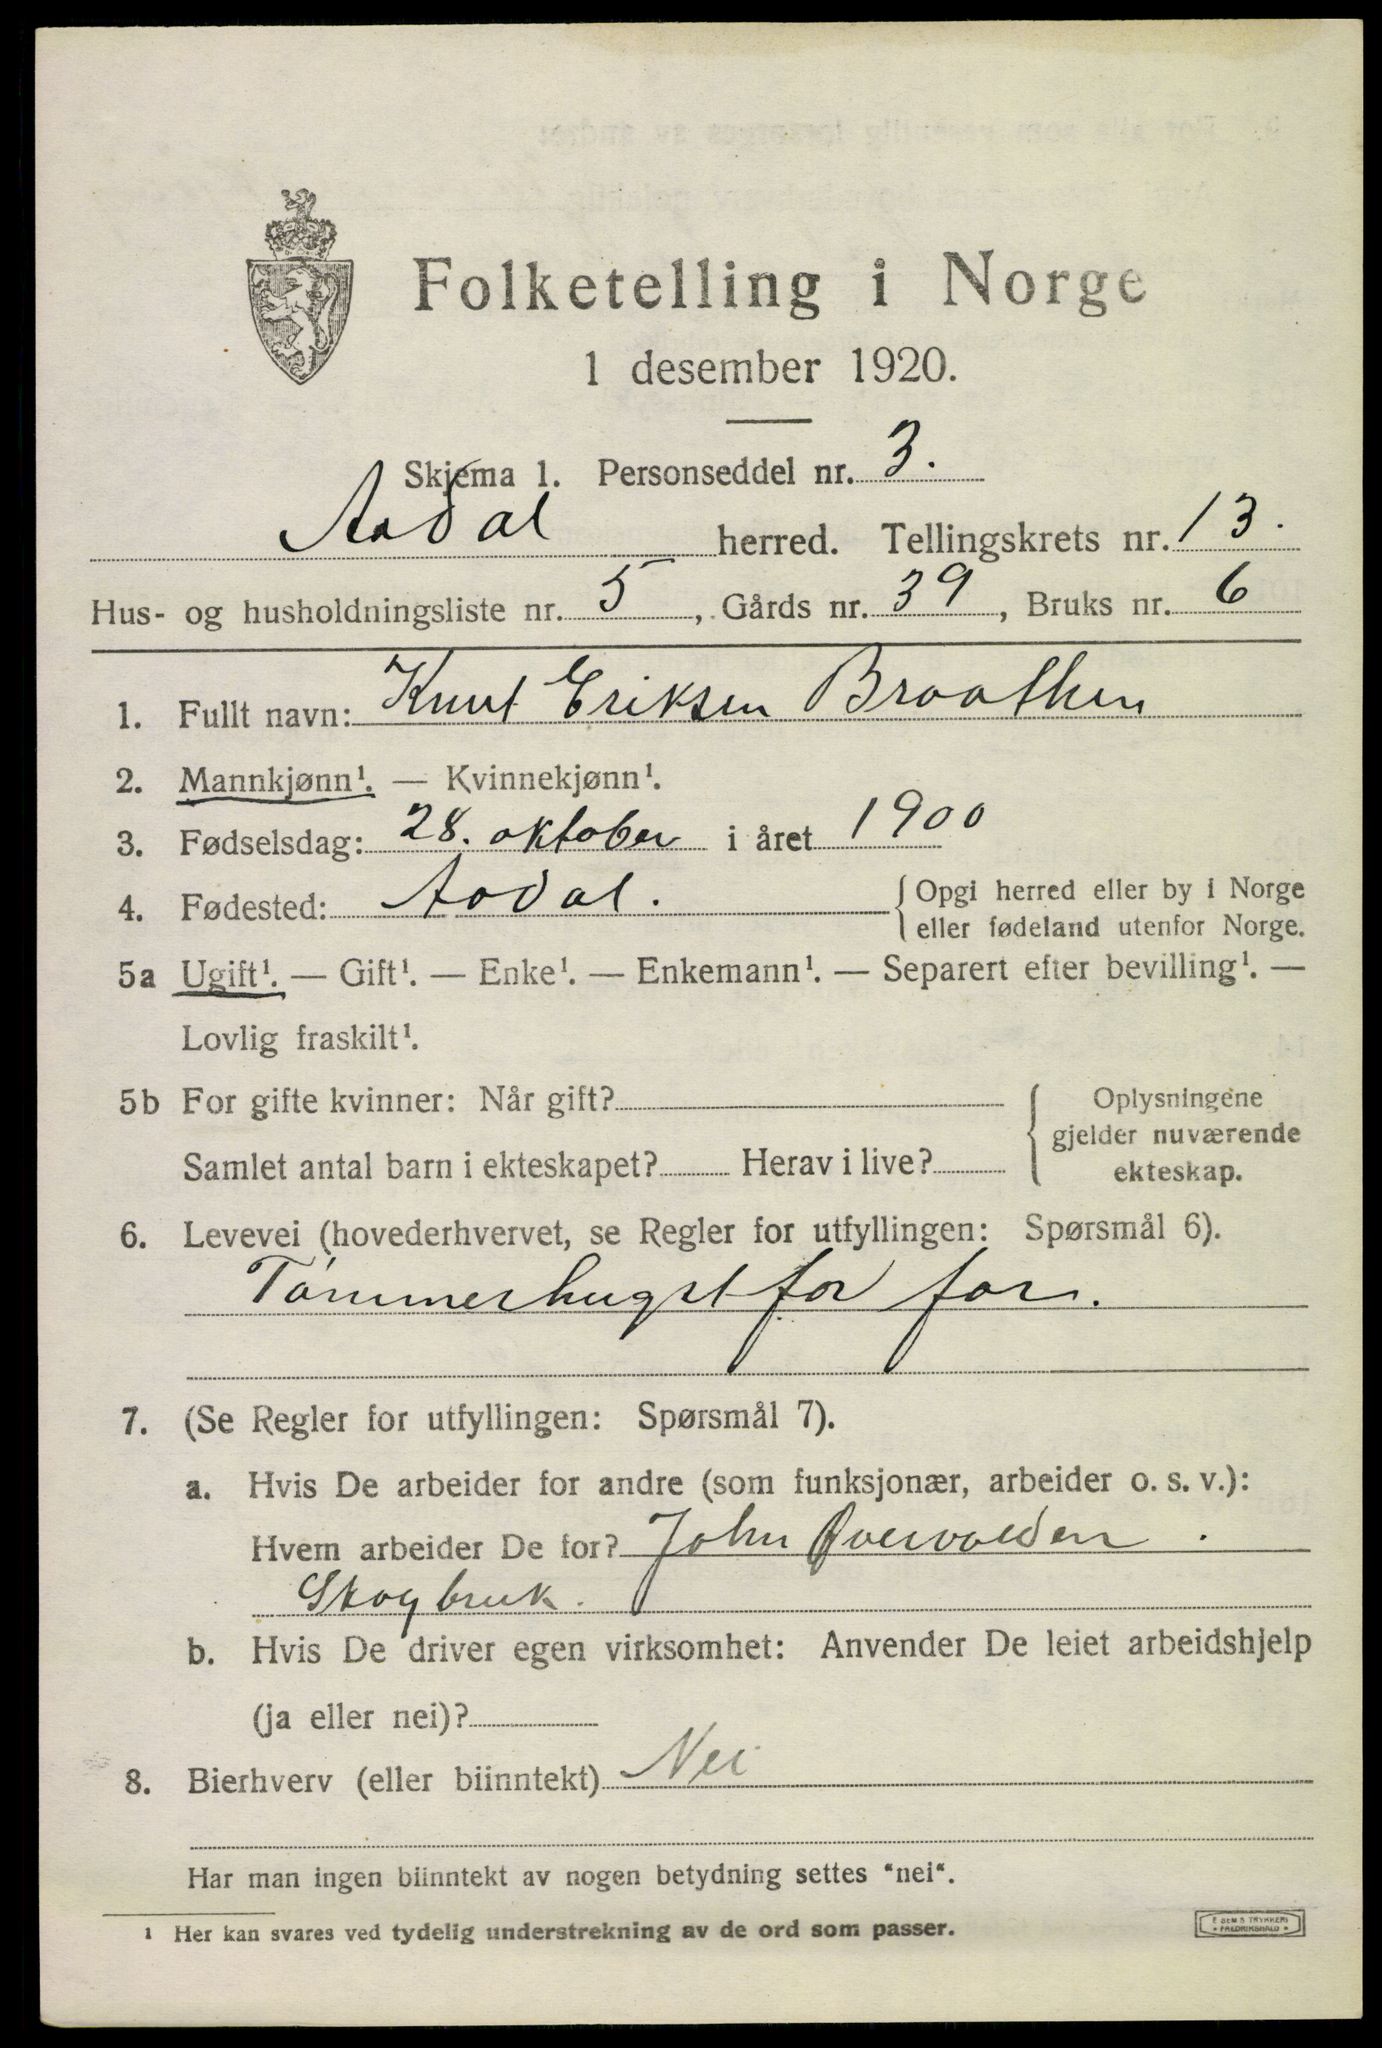 Folketelling i Norge
1 desember 1920.
Skjema 1. Personseddel nr. 3.
Aadal herred. Tellingskrets nr. 13.
Hus- og husholdningsliste nr. 5, Gårds nr. 39, Bruks nr. 6
1. Fullt navn: Knut Eriksen Braathen
2. Mannkjønn¹. — Kvinnekjønn¹.
3. Fødselsdag: 28. oktober i året 1900
4. Fødested: Aadal. { Opgi herred eller by i Norge
eller fødeland utenfor Norge.
5a Ugift¹. — Gift¹. — Enke¹. — Enkemann¹. — Separert efter bevilling¹. —
Lovlig fraskilt¹.
5b For gifte kvinner: Når gift?
Samlet antal barn i ekteskapet? Herav i live?
Oplysningene
gjelder nuværende
ekteskap.
6. Levevei (hovederhvervet, se Regler for utfyllingen: Spørsmål 6).
Tømmerhugst for far.
7. (Se Regler for utfyllingen: Spørsmål 7).
a. Hvis De arbeider for andre (som funksjonær, arbeider o. s. v.):
Hvem arbeider De for? John
Skogbruk.
b. Hvis De driver egen virksomhet: Anvender De leiet arbeidshjelp
(ja eller nei)?
8. Bierhverv (eller biinntekt) Nei
Har man ingen biinntekt av nogen betydning settes "nei".
¹ Her kan svares ved tydelig understrekning av de ord som passer.
E SEM S TRYKKERI
• FREDRIKSHALD •